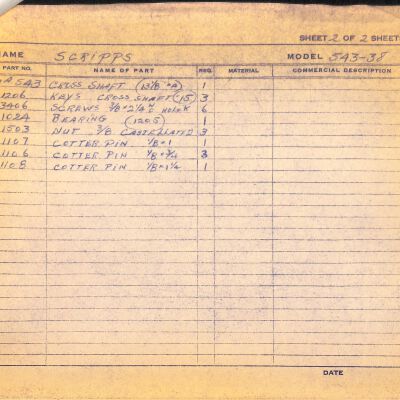 SHEET 2 OF 2 SHEETS
NAME SCRIPPS MODEL 543-38
PART NO. NAME OF PART REQ. MATERIAL COMMERCIAL DESCRIPTION
A543 CROSS SHAFT (13 1/8 "A) 1
1206 KEYS CROSS SHAFT (15) 3
3406 SCREWS HOLOK 6
1024 BEARING (1205) 1
1503 NUT 3/8 CASTELLATED 3
1107 COTTER PIN 1/8 x 1 1
1106 COTTER PIN 1/8 x 3/4 3
1108 COTTER PIN 1/8 x 1 1/4 1
DATE